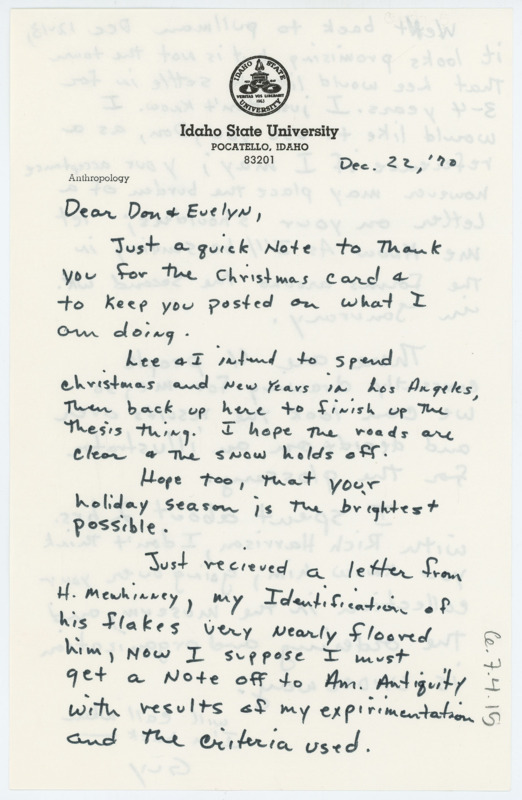 IDAHO STATE
UNIVERSITY
Idaho State University
POCATELLO, IDAHO
83201
Dec. 22, '70
Anthropology
Dear Don & Evelyn,
Just a quick Note to Thank
you for the Christmas card &
to keep you posted on what I
am doing.
Lee & I intend to spend
christmas and New Years in Los Angeles,
Then back up here to finish up the
thesis thing. I hope the roads are
clear & the snow holds off.
Hope too, that your
holiday season is the brightest
possible.
Just recieved a letter from
H. Mewhinney, my Identification of
his flakes very nearly floored
him, NOW I suppose I must
get a Note off to Am. Antiquity
with results of my expirimentation
and the criteria used.
6.7.4.15